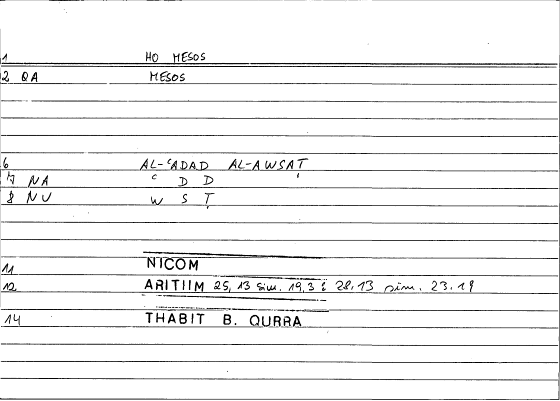 1 HO MESOS
2 QA MESOS
6 AL-ʿADAD AL-AWSAṬ
7 NA ʿ D D
8 NU W S Ṭ
11 NICOM
12 ARITIIM 25, 13 sim. 19,3 28,13 sim. 23.19
14 THABIT B. QURRA